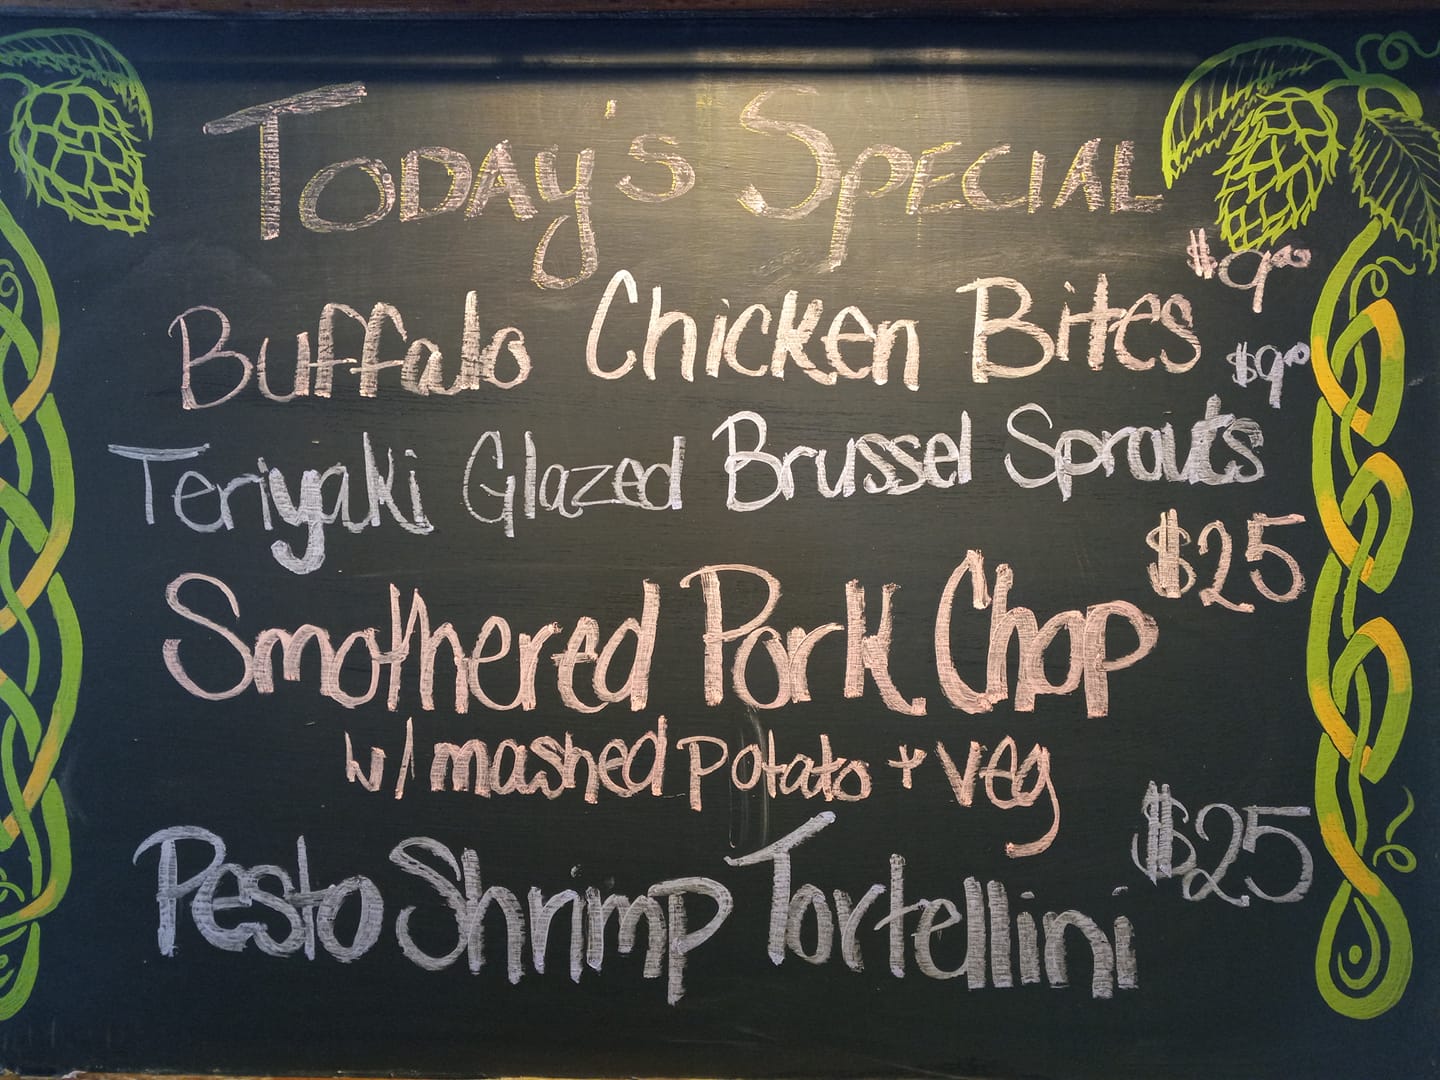 Today's Special
Buffalo Chicken Bites $9.00
Teriyaki Glazed Brussel Sprouts $9.00
Smothered Pork Chop $25
w/ mashed potato + veg
Pesto Shrimp Tortellini $25